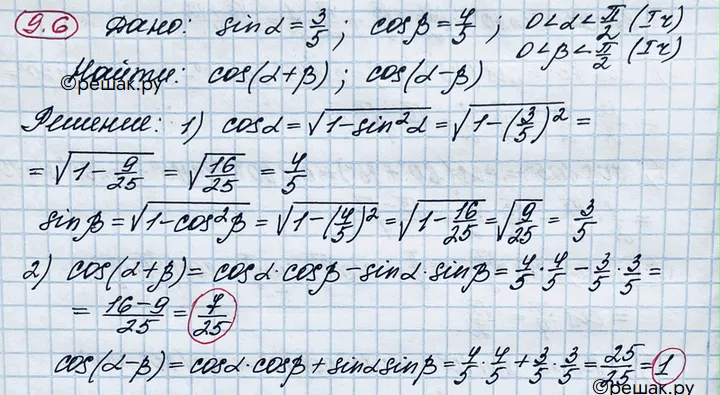 9.6 Дано: sinα = 3/5; cosβ = 4/5; 0<α<π/2 (Iч)
0<β<π/2 (Iч)
Найти: cos(α+β); cos(α-β)
©решак.ру
Решение: 1) cosα = √(1-sin²α) = √(1-(3/5)²) =
= √(1-9/25) = √(16/25) = 4/5
sinβ = √(1-cos²β) = √(1-(4/5)²) = √(1-16/25) = √(9/25) = 3/5
2) cos(α+β) = cosα·cosβ - sinα·sinβ = 4/5·4/5 - 3/5·3/5 =
= (16-9)/25 = 7/25
cos(α-β) = cosα·cosβ + sinα sinβ = 4/5·4/5 + 3/5·3/5 = 25/25 = 1
©решак.ру